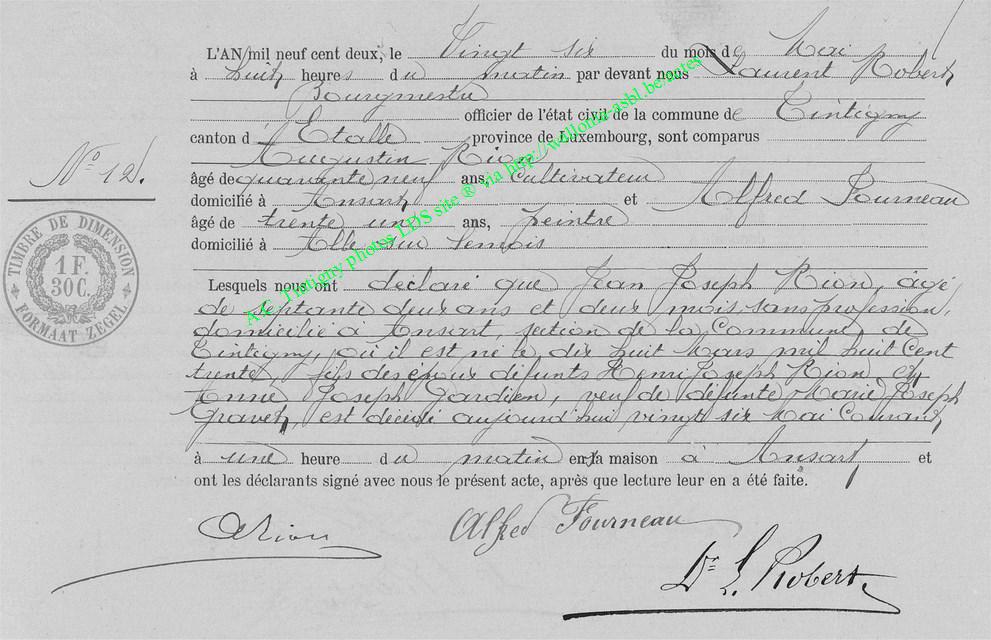 L'AN mil neuf cent deux, le Vingt six du mois de Mai
à huit heures du matin par devant nous Laurent Robert,
Bourgmestre
officier de l'état civil de la commune de Tintigny
canton d'Etalle province de Luxembourg, sont comparus
Augustin Rion
N° 12.
âgé de quarante neuf ans, Cultivateur
domicilié à Ansart et Alfred Fourneau
âgé de trente un ans, peintre
domicilié à Alle sur Semois
Lesquels nous ont déclaré que Jean Joseph Rion, âgé
de septante deux ans et deux mois, sans profession,
domicilié à Ansart, section de la Commune de
Tintigny, où il est né le dix huit Mars mil huit Cent
trente, fils des époux défunts Henri Joseph Rion et
Anne Joseph Gardien, veuf de défunte Marie Joseph
Gravet, est décédé aujourd'hui vingt six Mai Courant,
à une heure du matin en sa maison à Ansart, et
ont les déclarants signé avec nous le présent acte, après que lecture leur en a été faite.
ARion Alfred Fourneau
Dr L. Robert
TIMBRE DE DIMENSION
1 F.
30 C.
FORMAAT ZEGEL
A.C. Tintigny photos LDS site ® via http://wellonia-asbl.be.actes